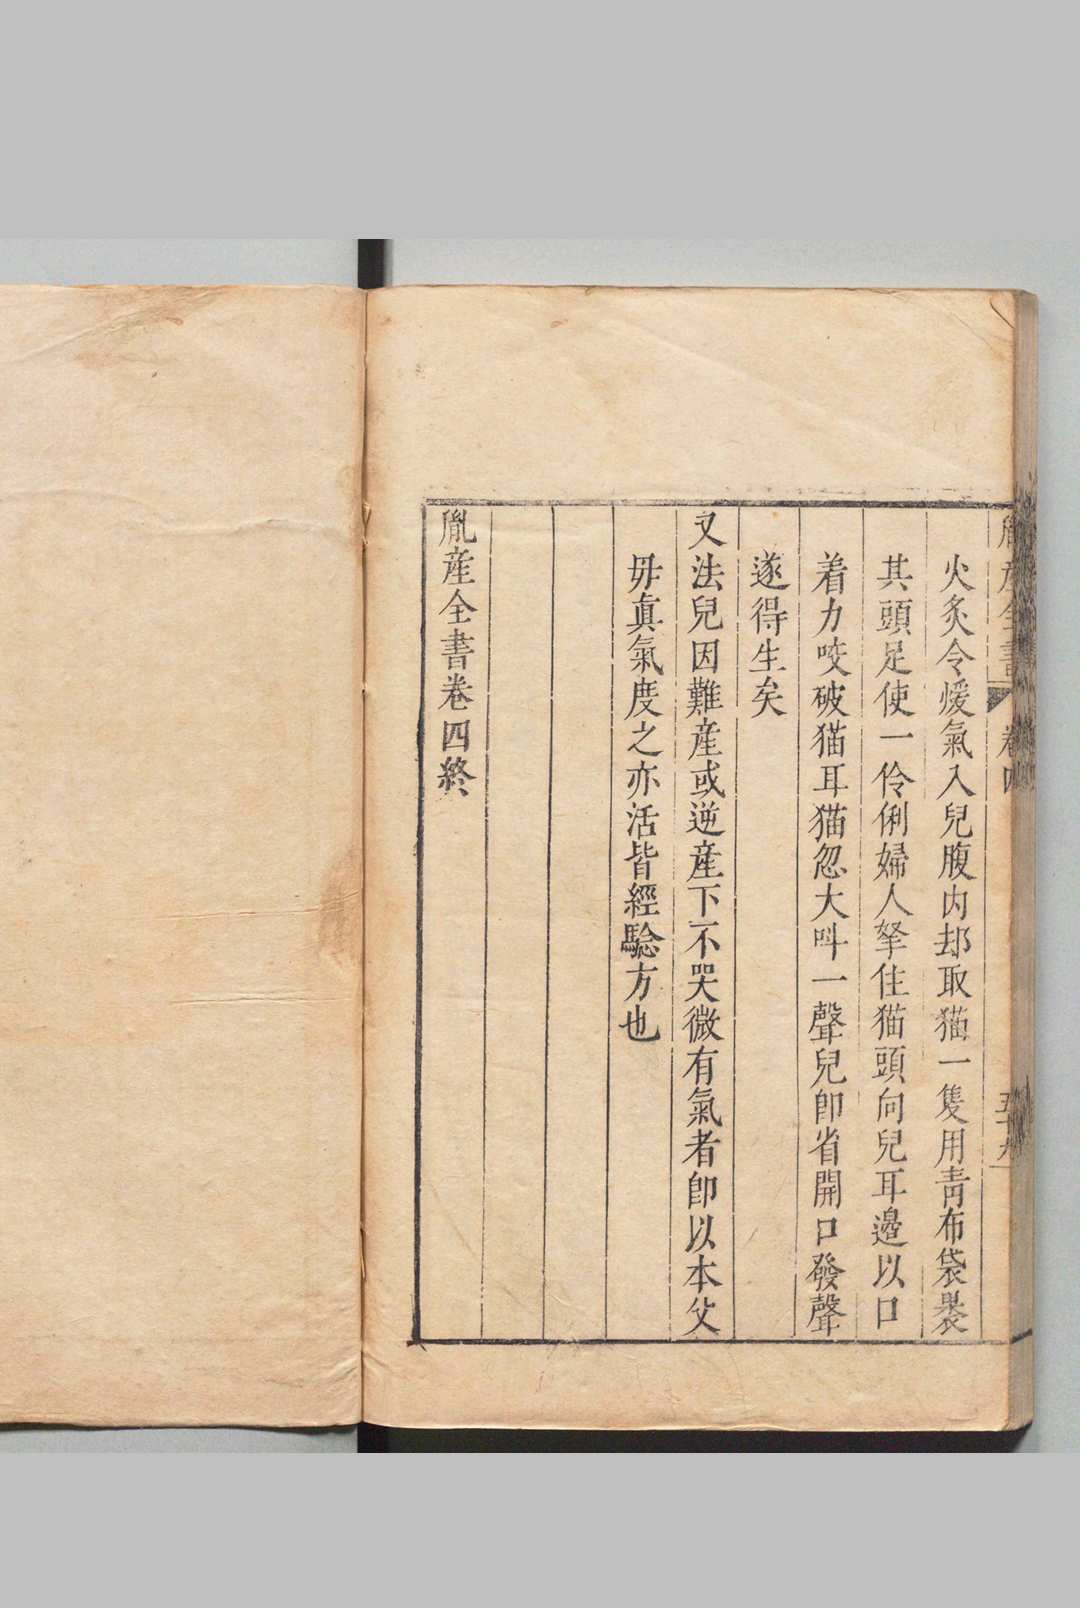 胤産全書 卷四 五十九
火炙令煖氣入兒腹内却取猫一隻用靑布袋裹
其頭足使一伶俐婦人拏住猫頭向兒耳邊以口
着力咬破猫耳猫忽大呌一聲兒卽省開口發聲
遂得生矣
又法兒因難産或逆産下不哭微有氣者卽以本父
毋眞氣度之亦活皆經騐方也
胤産全書卷四終